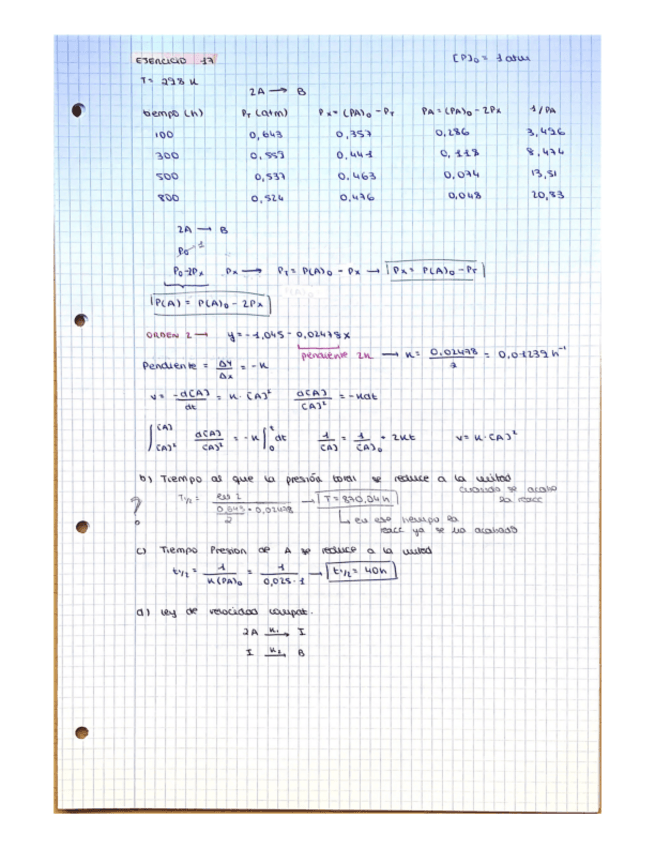 EJERCICIO 17
[P]₀ = 1 atm
T = 298 K
2A → B
tiempo (h) PT (atm) Px = (PA)₀ - PT PA = (PA)₀ - 2Px 1/PA
100 0,643 0,357 0,286 3,496
300 0,559 0,441 0,118 8,474
500 0,537 0,463 0,074 13,51
800 0,524 0,476 0,048 20,83
2A → B
P₀ 1
P₀-2Px Px → PT = P(A)₀ - Px → Px = P(A)₀ - PT
P(A) = P(A)₀ - 2Px
ORDEN 2 → y = -1,045 - 0,02478x
Pendiente = Δy/Δx = -K pendiente 2K → K = 0,02478/2 = 0,01239 h⁻¹
v = -d[A]/dt = K·[A]² d[A]/[A]² = -Kdt
∫ d[A]/[A]² = -K ∫₀ᵗ dt 1/[A] = 1/[A]₀ + 2Kt v = K·[A]²
b) Tiempo al que la presión total se reduce a la mitad
cuando se acabo la reacc
? T₁/₂ = → T = 870,04 h
↳ en ese tiempo la reacc ya se ha acabado
c) Tiempo Presion de A se reduce a la mitad
t₁/₂ = 1/K(PA)₀ = 1/0,025·1 → t₁/₂ = 40h
d) Ley de velocidad compat.
2A K₁→ I
I K₂→ B